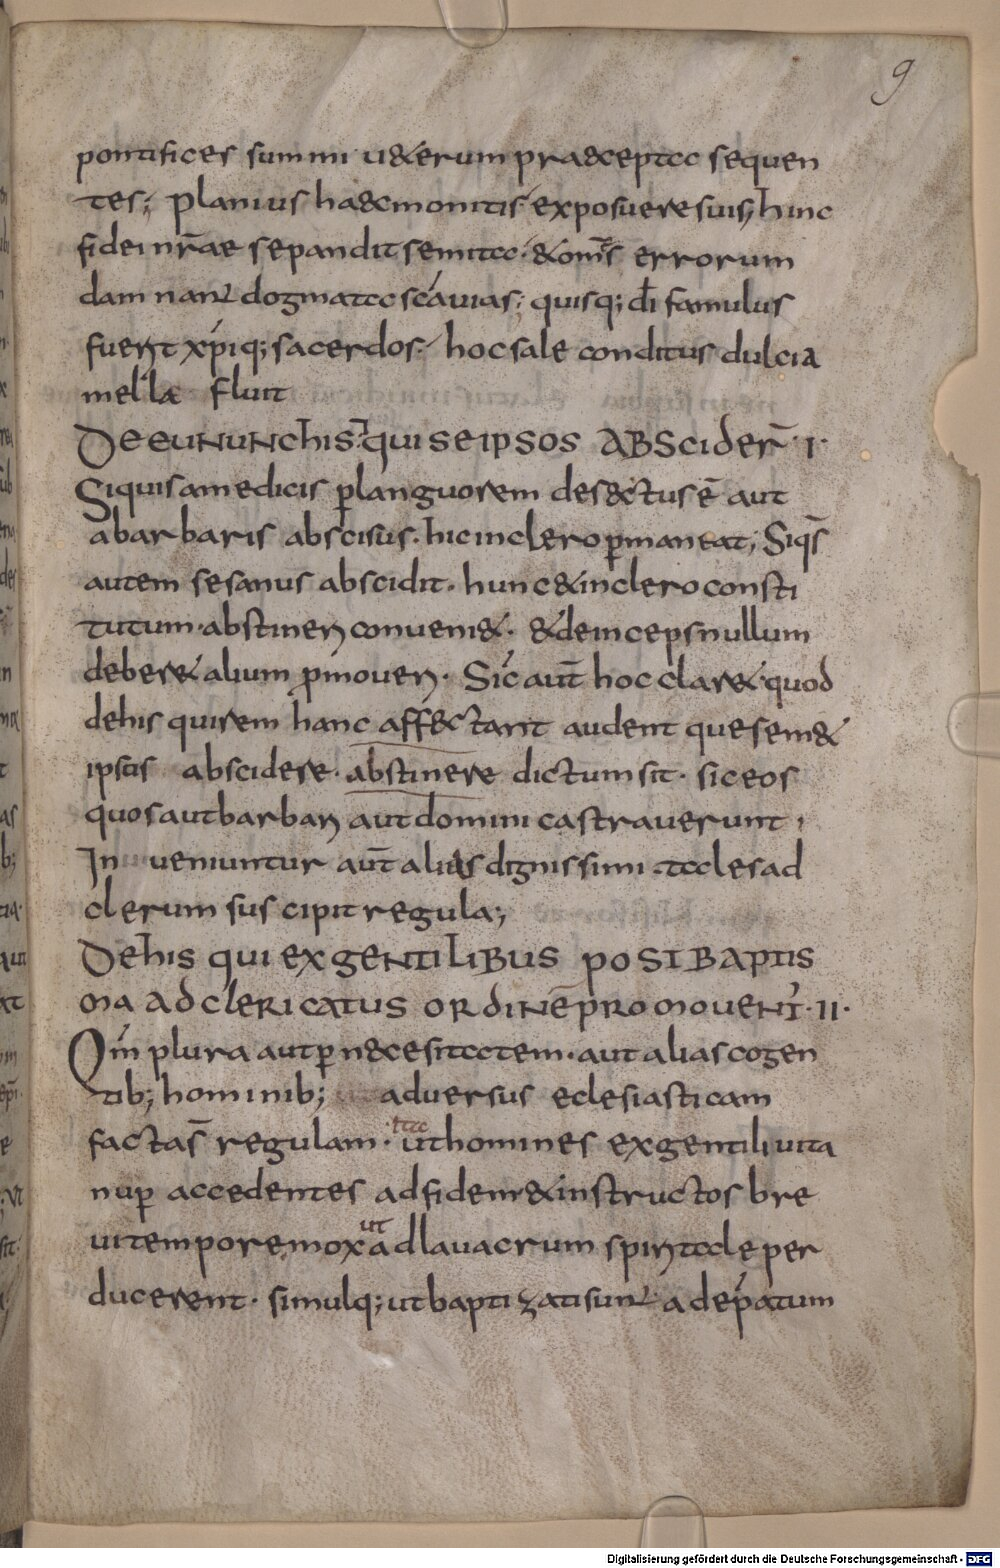 9
pontifices summi u&erum praecepta sequen
tes; planius haecmonitis exposueresuis; hinc
fidei nr̄ae sepandit semita· &om̄s errorum
damnant dogmata sc̄auias; quisq; dī famulus
fuerit xp̄iq; sacerdos· hoc sale conditus dulcia
mella fluit
DE EUNUNCHIS· qui SE IPSOS ABSCIDER̄·I·
Siquis amedicis p̱languorem des&ctus ē aut
abarbaris abscisus· hic inclero p̱maneat; Siqs̄
autem sesanus abscidit· hunc &inclero consti
tutum·abstineri conueni&· &deinceps nullum
deber& alium p̄moueri· Sic̄ aut̄ hoc clar&·quod
dehis quirem hanc aff&ctant audent quesem&
ipsos abscidere· abstinere dictumsit· sic eos
quosautbarbari autdomini castrauerunt·
Inueniuntur aut̄ alias dignissimi·tales ad
clerum suscipit regula;
DE HIS QUI EX GENTILIBUS POST BAPTIS
MA AD CLERICATUS ORDINĒ PROMOUENT̄·II·
Qm̄ plura autp̱ necesitatem·aut alias cogen
tib; hominib; aduersus eclesiasticam
facta s̄ regulam· ita
ut homines exgentili uita
nup̱ accedentes adfidem &instructos bre
uitempore mox ut
adlauacrum spiritale per
ducerent· simulq; utbaptizatisunt adep̄atum
Digitalisierung gefördert durch die Deutsche Forschungsgemeinschaft - DFG